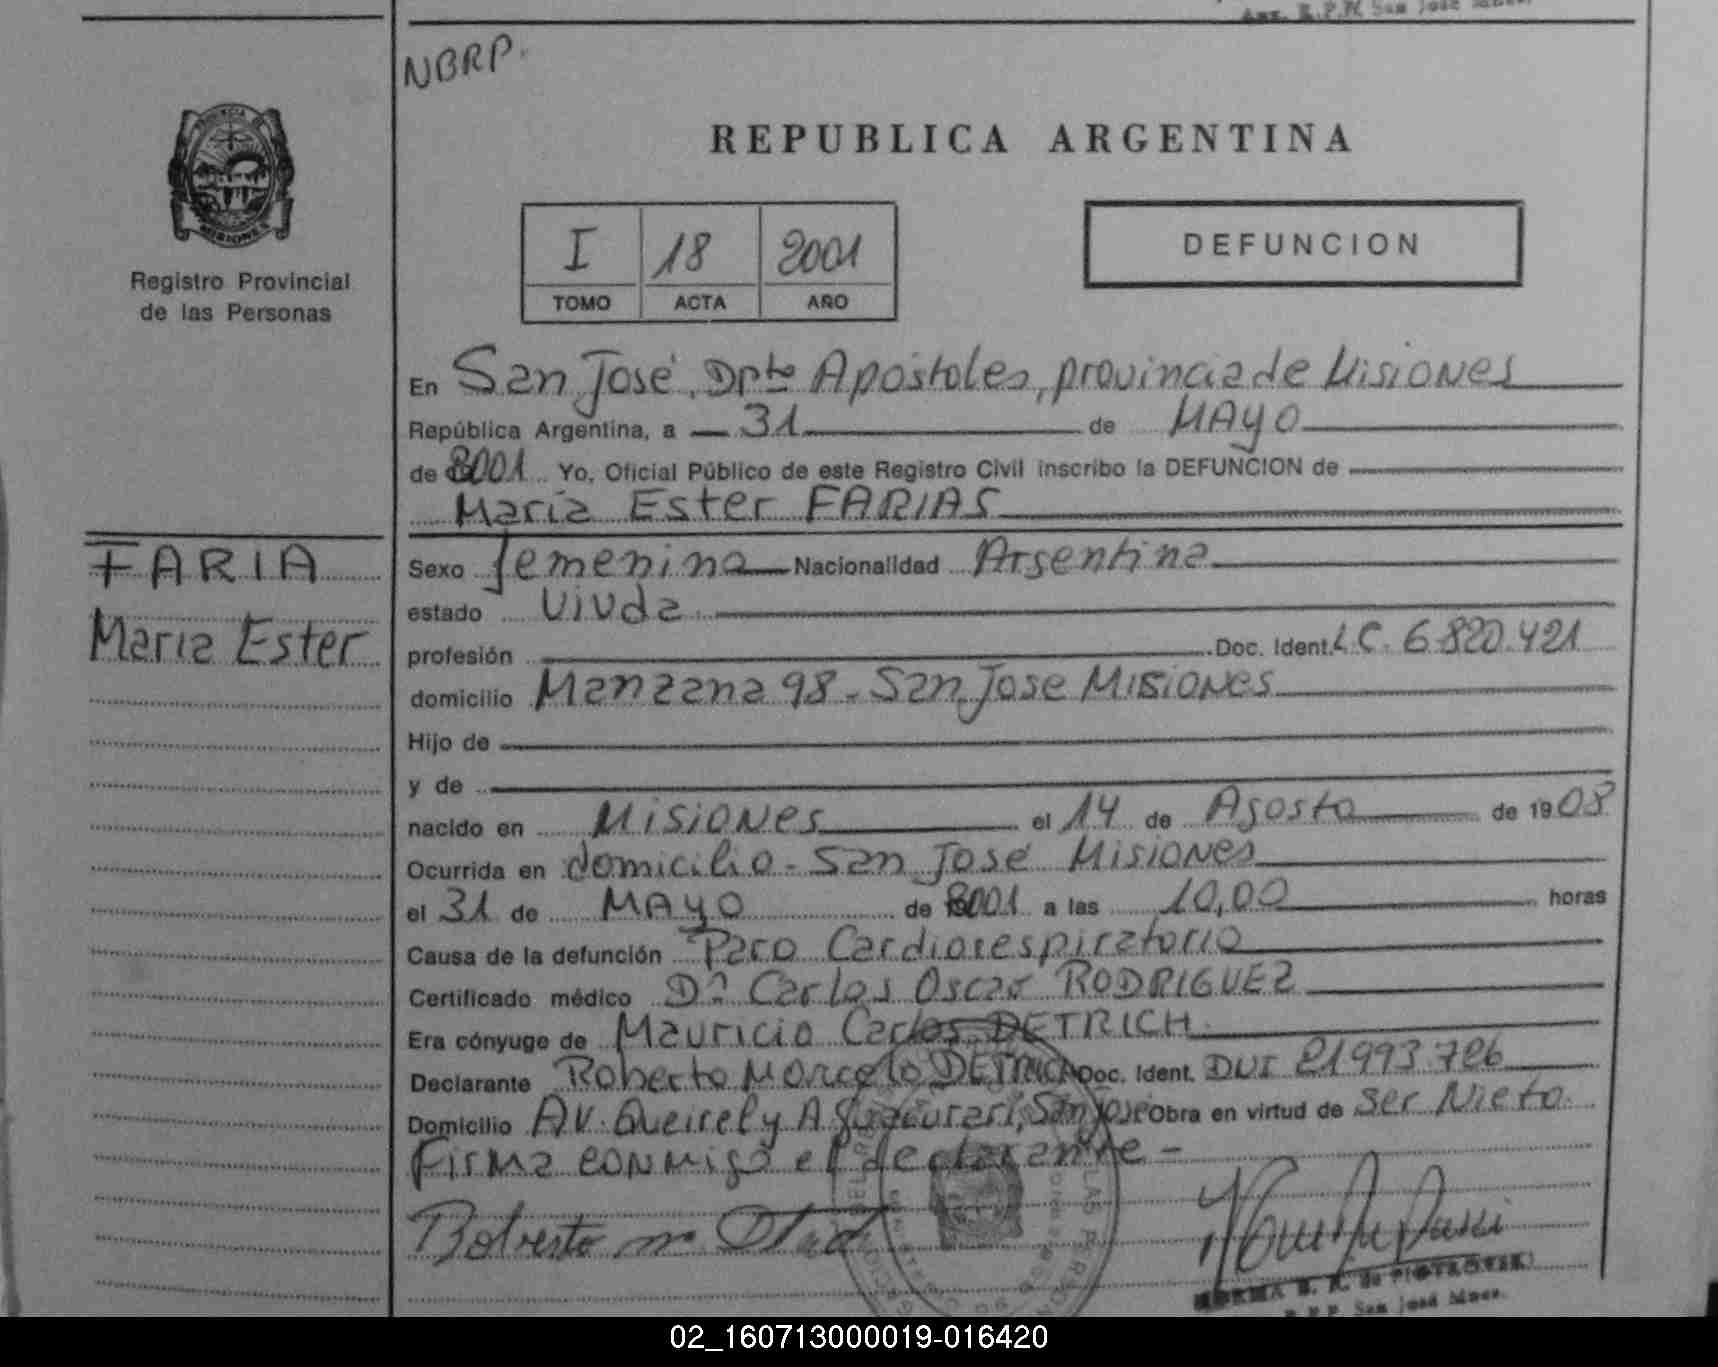 Aux. R.P.P. San José Mnes.
NBRP.
PROVINCIA DE
MISIONES
Registro Provincial
de las Personas
REPUBLICA ARGENTINA
I 18 2001
TOMO ACTA AÑO
DEFUNCION
En San José, Dpto Apóstoles, provincia de Misiones
República Argentina, a 31 de MAyo
de 2001 Yo, Oficial Público de este Registro Civil inscribo la DEFUNCION de
María Ester FARIAS
FARIA
María Ester
Sexo femenino Nacionalidad Argentina
estado viuda
profesión Doc. Ident. L.C. 6.820.421
domicilio Manzana 98 - San José Misiones
Hijo de
y de
nacido en Misiones el 14 de Agosto de 1908
Ocurrida en domicilio - San José Misiones
el 31 de MAyo de 2001 a las 10,00 horas
Causa de la defunción Paro Cardiorespiratorio
Certificado médico Dr. Carlos Oscar RODRIGUEZ
Era cónyuge de Mauricio Carlos DETRICH
Declarante Roberto Marcelo DETRICH Doc. Ident. DNI 21993726
Domicilio Av. Queirel y A Guacurarí, San José Obra en virtud de ser Nieto.
Firma conmigo el declarante -
Roberto m
LAS PERSON
NORMA B. R. de PIOTROSKI
R.P.P. San José Mnes.
02_160713000019-016420